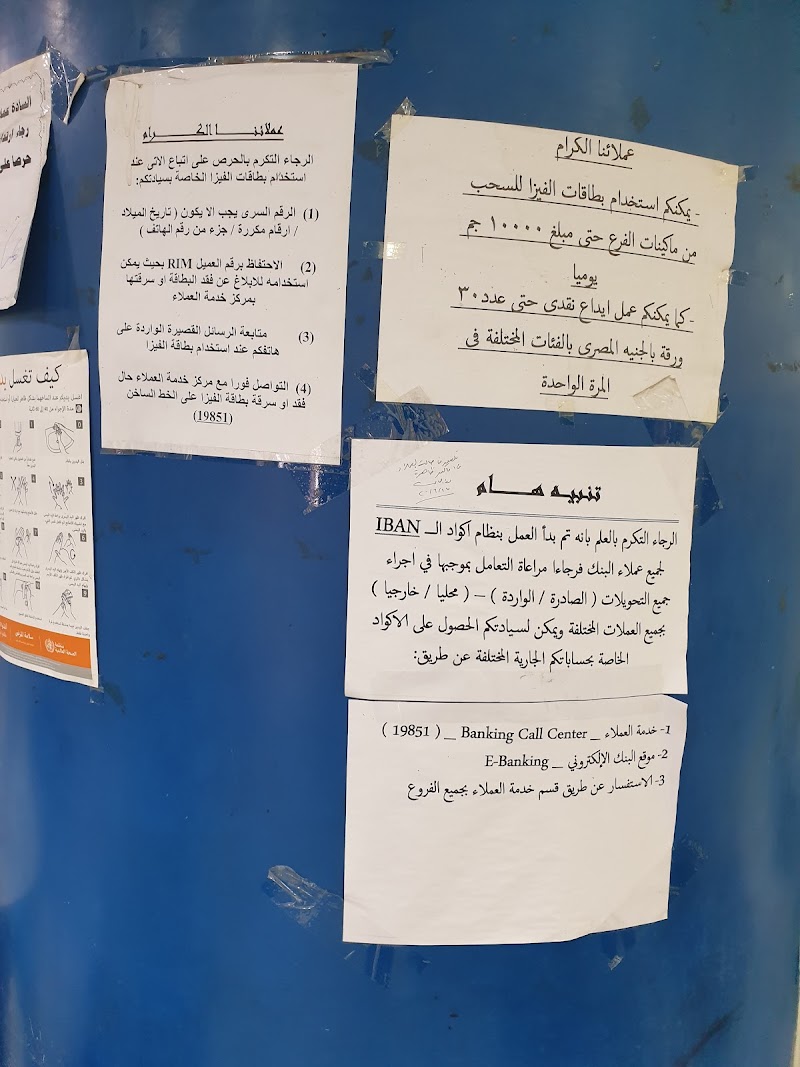 السادة
رجاء
حرصا على
عملائنـــا الكـــــــرام
الرجاء التكرم بالحرص على اتباع الاتى عند
استخدام بطاقات الفيزا الخاصة بسيادتكم:
(1) الرقم السرى يجب الا يكون ( تاريخ الميلاد
/ ارقام مكررة / جزء من رقم الهاتف )
(2) الاحتفاظ برقم العميل RIM بحيث يمكن
استخدامه للابلاغ عن فقد البطاقة او سرقتها
بمركز خدمة العملاء
(3) متابعة الرسائل القصيرة الواردة على
هاتفكم عند استخدام بطاقة الفيزا
(4) التواصل فورا مع مركز خدمة العملاء حال
فقد او سرقة بطاقة الفيزا على الخط الساخن
(19851)
عملائنا الكرام
- يمكنكم استخدام بطاقات الفيزا للسحب
من ماكينات الفرع حتى مبلغ ١٠٠٠٠ جم
يوميا
- كما يمكنكم عمل ايداع نقدى حتى عدد ٣٠
ورقة بالجنيه المصرى بالفئات المختلفة فى
المرة الواحدة
تنبيه هـــام
الرجاء التكرم بالعلم بانه تم بدأ العمل بنظام اكواد الـــ IBAN
لجميع عملاء البنك فرجاءا مراعاة التعامل بموجبها في اجراء
جميع التحويلات ( الصادرة / الواردة ) – ( محليا / خارجيا )
بجميع العملات المختلفة ويمكن لسيادتكم الحصول على الاكواد
الخاصة بحساباتكم الجارية المختلفة عن طريق:
1- خدمة العملاء _ Banking Call Center _ ( 19851 )
2- موقع البنك الإلكتروني _ E-Banking
3- الاستفسار عن طريق قسم خدمة العملاء بجميع الفروع
كيف تغسل